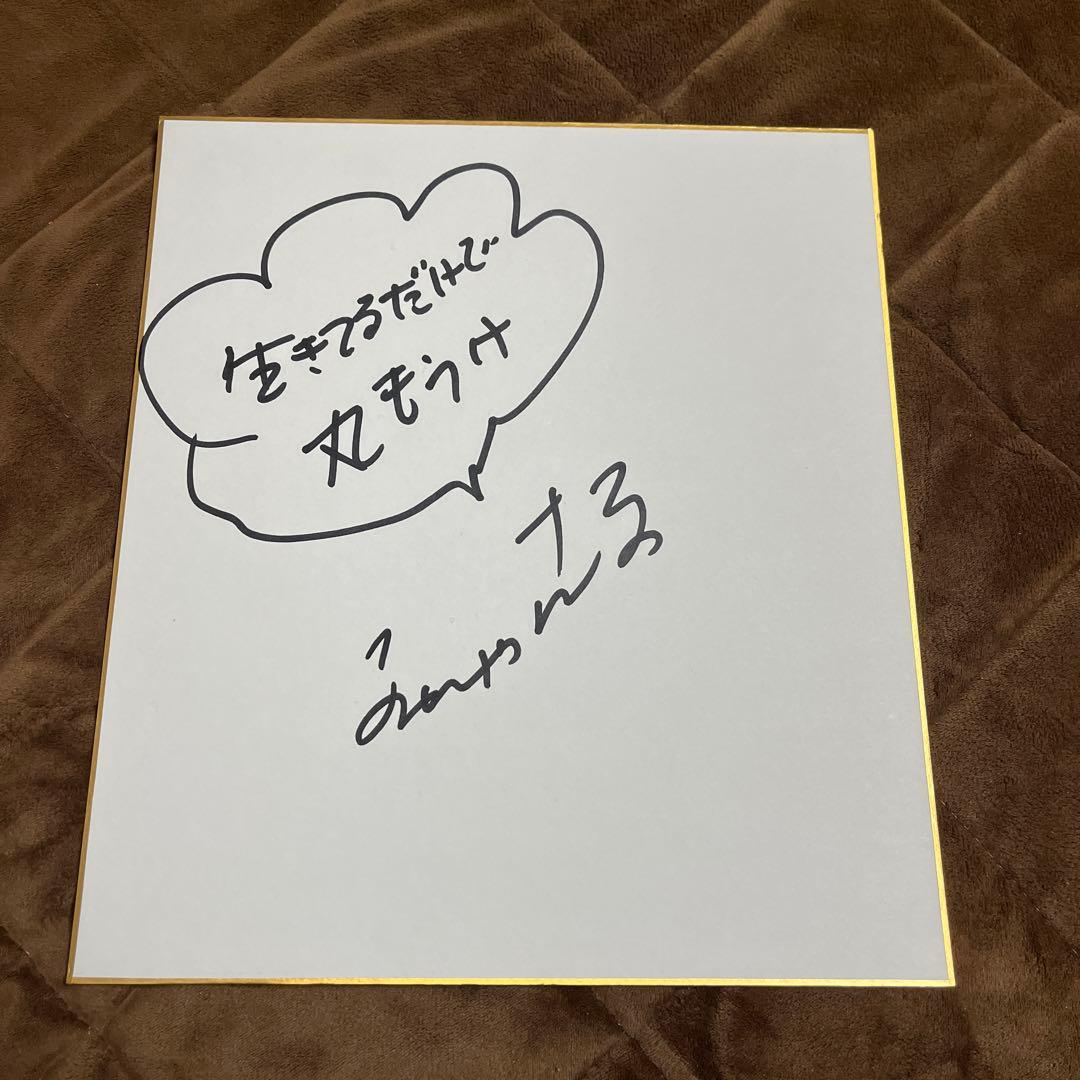 生きてるだけで
丸もうけ